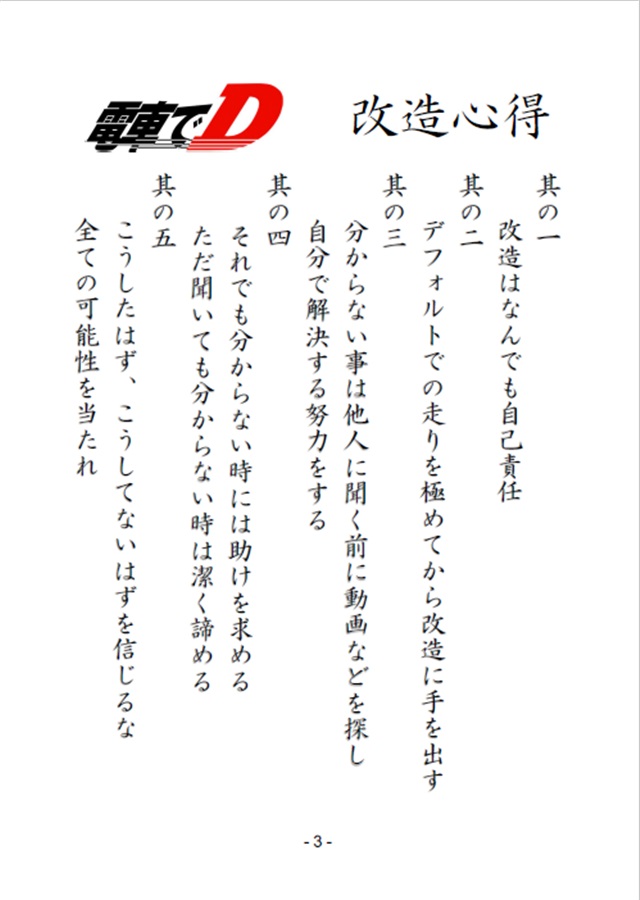 電車でD
改造心得
其の一
改造はなんでも自己責任
其の二
デフォルトでの走りを極めてから改造に手を出す
其の三
分からない事は他人に聞く前に動画などを探し
自分で解決する努力をする
其の四
それでも分からない時には助けを求める
ただ聞いても分からない時は潔く諦める
其の五
こうしたはず、こうしてないはずを信じるな
全ての可能性を当たれ
- 3 -